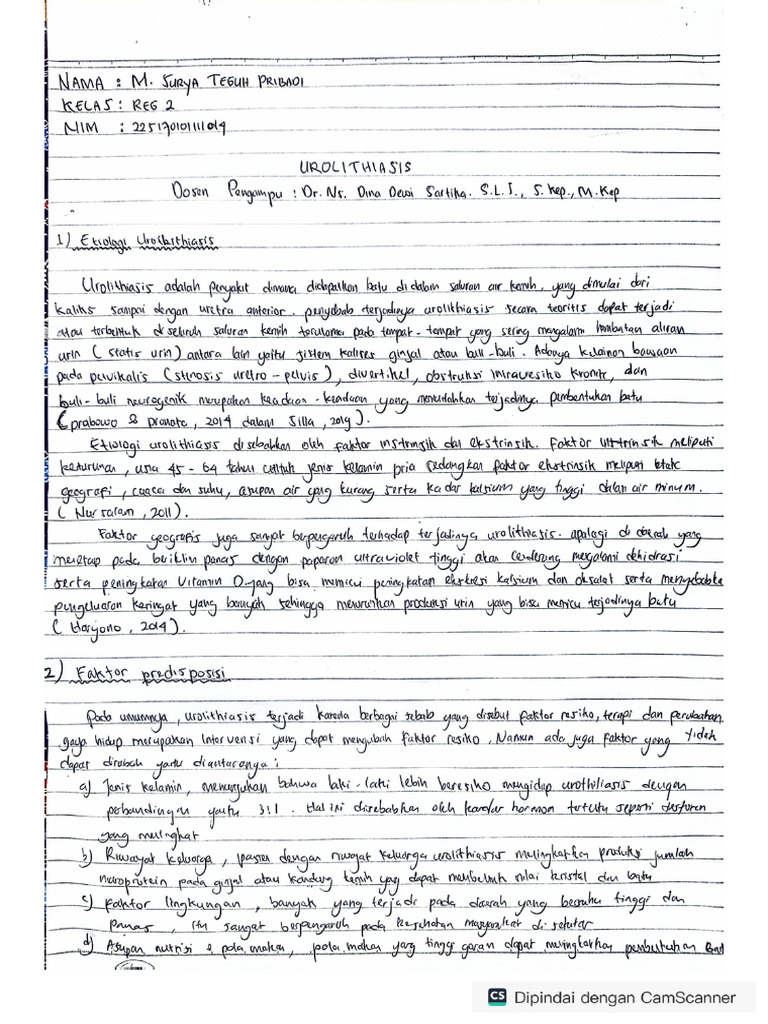 NAMA : M. SURYA TEGUH PRIBADI
KELAS : REG 2
NIM : 22517010111019
UROLITHIASIS
Dosen Pengampu : Dr. Ns. Dina Dewi Sartika. S.L.I., S.Kep., M.Kep
1) Etiologi Urolithiasis
Urolithiasis adalah penyakit dimana didapatkan batu di dalam saluran air kemih, yang dimulai dari
kaliks sampai dengan uretra anterior. penyebab terjadinya urolithiasis secara teoritis dapat terjadi
atau terbentuk di seluruh saluran kemih terutama pada tempat-tempat yang sering mengalami hambatan aliran
urin (statis urin) antara lain yaitu sistem kalises ginjal atau buli-buli. Adanya kelainan bawaan
pada pelvikalis (stenosis uretro-pelvis), divertikel, obstruksi intravesiko kronik, dan
buli-buli neurogenik merupakan keadaan-keadaan yang memudahkan terjadinya pembentukan batu
(prabowo & pranata, 2014 dalam Silla, 2019).
Etiologi urolithiasis disebabkan oleh faktor instrinsik dan ekstrinsik. Faktor meliputi
keturunan, usia 45-64 tahun untuk jenis kelamin pria sedangkan faktor ekstrinsik meliputi letak
geografi, cuaca dan suhu, asupan air yang kurang serta kadar kalsium yang tinggi dalam air minum.
(Nursalam, 2011).
Faktor geografis juga sangat berpengaruh terhadap terjadinya urolithiasis. apalagi di daerah yang
menetap pada beriklim panas dengan paparan ultraviolet tinggi akan cenderung mengalami dehidrasi
serta peningkatan Vitamin D yang bisa memicu peningkatan ekskresi kalsium dan oksalat serta menyebabkan
pengeluaran keringat yang banyak sehingga menurunkan produksi urin yang bisa memicu terjadinya batu
(Haryono, 2014).
2) Faktor predisposisi
Pada umumnya, urolithiasis terjadi karena berbagai sebab yang disebut faktor resiko, terapi dan perubahan
gaya hidup merupakan intervensi yang dapat mengubah faktor resiko. Namun ada juga faktor yang tidak
dapat dirubah yaitu diantaranya :
a) Jenis kelamin, menunjukan bahwa laki-laki lebih beresiko mengidap urothiliasis dengan
perbandingan yaitu 3:1. Hal ini disebabkan oleh kadar hormon tertentu seperti
yang meningkat
b) Riwayat keluarga, pasien dengan riwayat keluarga urolithiasis meningkatkan produksi jumlah
mucoprotein pada ginjal atau kandung kemih yang dapat membentuk nilai kristal dan batu
c) Faktor lingkungan, banyak yang terjadi pada daerah yang bersuhu tinggi dan
panas, itu sangat berpengaruh pada kesehatan masyarakat di sekitar
d) Asupan nutrisi & pola makan, pola makan yang tinggi garam dapat meningkatkan pembentukan
CS Dipindai dengan CamScanner